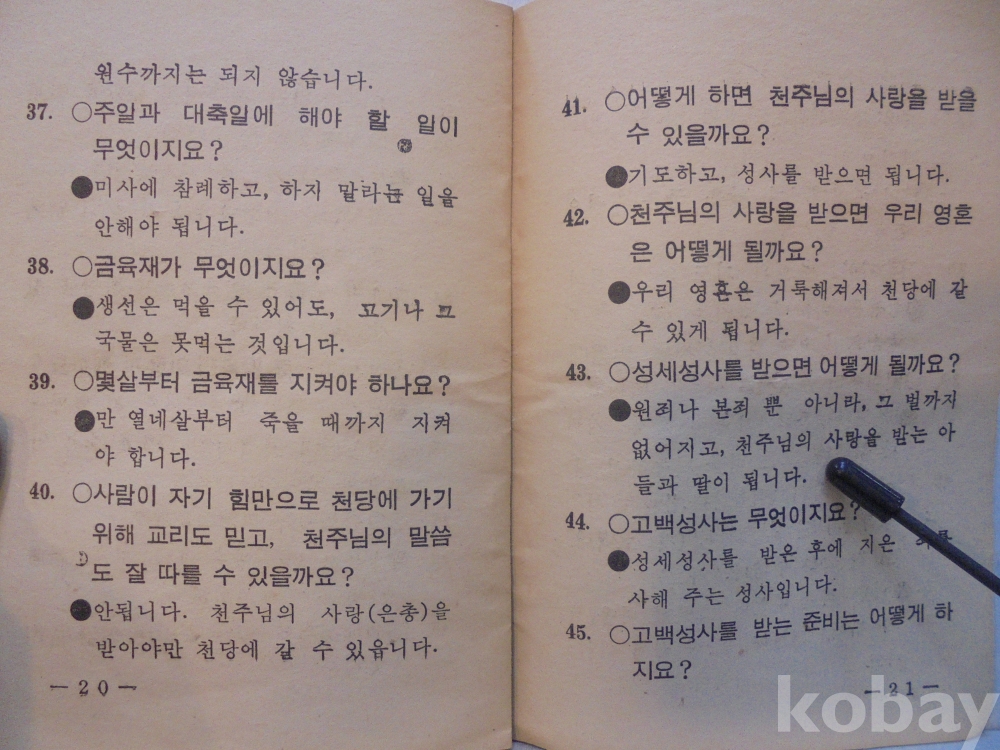 원수까지는 되지 않습니다.
37. ○주일과 대축일에 해야 할 일이
무엇이지요?
●미사에 참례하고, 하지 말라는 일을
안해야 됩니다.
38. ○금육재가 무엇이지요?
●생선은 먹을 수 있어도, 고기나 그
국물은 못먹는 것입니다.
39. ○몇살부터 금육재를 지켜야 하나요?
●만 열네살부터 죽을 때까지 지켜
야 합니다.
40. ○사람이 자기 힘만으로 천당에 가기
위해 교리도 믿고, 천주님의 말씀
도 잘 따를 수 있을까요?
●안됩니다. 천주님의 사랑(은총)을
받아야만 천당에 갈 수 있읍니다.
—20—
41. ○어떻게 하면 천주님의 사랑을 받을
수 있을까요?
●기도하고, 성사를 받으면 됩니다.
42. ○천주님의 사랑을 받으면 우리 영혼
은 어떻게 될까요?
●우리 영혼은 거룩해져서 천당에 갈
수 있게 됩니다.
43. ○성세성사를 받으면 어떻게 될까요?
●원죄나 본죄 뿐 아니라, 그 벌까지
없어지고, 천주님의 사랑을 받는 아
들과 딸이 됩니다.
44. ○고백성사는 무엇이지요?
●성세성사를 받은 후에 지은
사해 주는 성사입니다.
45. ○고백성사를 받는 준비는 어떻게 하
지요?
—21—
kobay